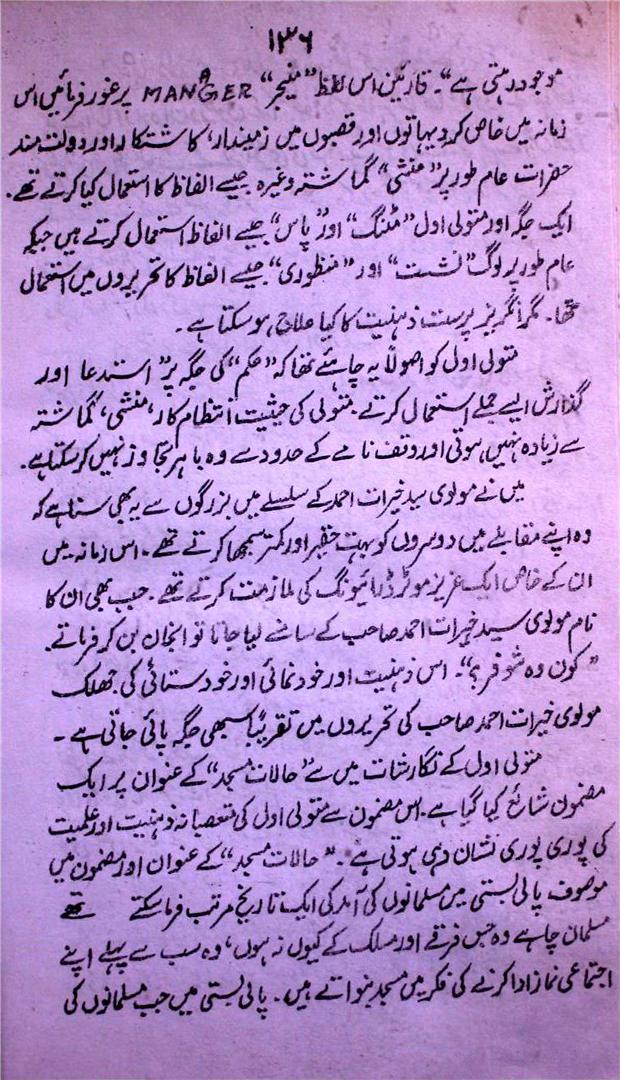 ۱۳۶
موجود رہتی ہے"۔ قارئین اس لفظ "منیجر" MANAGER پر غور فرمائیں اس
زمانہ میں خاص کر دیہاتوں اور قصبوں میں زمیندار، کاشتکار اور دولت مند
حضرات عام طور پر "منشی" گماشتہ وغیرہ جیسے الفاظ کا استعمال کیا کرتے تھے۔
ایک جگہ اور متولی اول "مٹنگ" اور "پاس" جیسے الفاظ استعمال کرتے ہیں جبکہ
عام طور پر لوگ "نشست" اور "منظوری" جیسے الفاظ کا تحریروں میں استعمال
تھا۔ مگر انگریز پرست ذہنیت کا کیا علاج ہو سکتا ہے۔
متولی اول کو اصولاً یہ چاہئے تھا کہ "حکم" کی جگہ پر "استدعا اور
گذارش ایسے جملے استعمال کرتے۔ متولی کی حیثیت انتظام کار، منشی، گماشتہ
سے زیادہ نہیں ہوتی اور وقف نامے کے حدود سے وہ باہر تجاوز نہیں کر سکتا ہے۔
میں نے مولوی سید خیرات احمد کے سلسلے میں بزرگوں سے یہ بھی سنا ہے کہ
وہ اپنے مقابلے میں دوسروں کو بہت حقیر اور کمتر سمجھا کرتے تھے۔ اس زمانہ میں
ان کے خاص ایک عزیز موٹر ڈرائیونگ کی ملازمت کرتے تھے۔ جب بھی ان کا
نام مولوی سید خیرات احمد صاحب کے سامنے لیا جاتا تو انجان بن کر فرماتے۔
"کون وہ شوفر؟"۔ اس ذہنیت اور خود نمائی اور خود ستائی کی جھلک
مولوی خیرات احمد صاحب کی تحریروں میں تقریباً سبھی جگہ پائی جاتی ہے۔
متولی اول کے نگارشات میں سے "حالات مسجد" کے عنوان پر ایک
مضمون شائع کیا گیا ہے۔ اس مضمون سے متولی اول کی متعصبانہ ذہنیت اور علمیت
کی پوری پوری نشان دہی ہوتی ہے۔ "حالات مسجد" کے عنوان اور مضمون میں
موصوف پالی بستی میں مسلمانوں کی آمد کی ایک تاریخ مرتب فرما سکتے تھے
مسلمان چاہے وہ جس فرقے اور مسلک کے کیوں نہ ہوں، وہ سب سے پہلے اپنے
اجتماعی نماز ادا کرنے کی فکر میں مسجد بنواتے ہیں۔ پالی بستی میں جب مسلمانوں کی